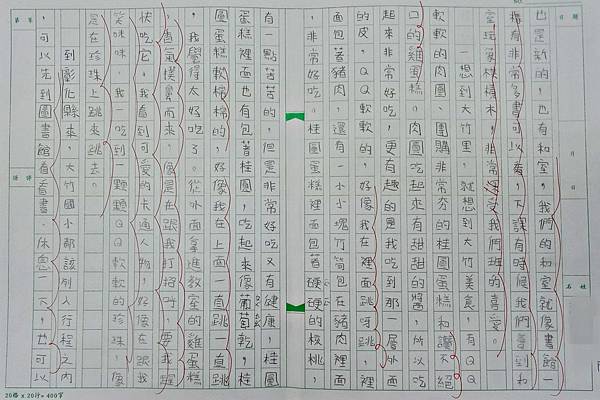 日期
月
日
姓名
也是新的，也有和室，我們的和室就像書館一
擁有非常多書可以看，下課有時候我們會到和
室玩象棋積木，非常受我們班的喜愛。
一想到大竹里，就想到大竹美食，有QQ
軟軟的肉圓、團購非常夯的桂圓蛋糕和讚不絕
口的雞蛋糕。肉圓吃起來有甜甜的醬，所以吃
起來非常好吃，更有趣的是我吃到那一層外面
的皮，QQ軟軟的，好像我在裡面跳呀跳，裡
面包著豬肉，還有一小小塊竹筍包在豬肉裡面
，非常好吃。桂圓蛋糕裡面包著硬硬的核桃，
有一點苦苦的，但是非常好吃又有健康，桂圓
蛋糕裡面也有包著桂圓，吃起來像葡萄乾，桂
圓蛋糕軟棉棉的，好像我在上面一直跳一直跳
，我覺得太好吃了。從外面拿進教室的雞蛋糕
香氣撲鼻而來，像是在跟我打招呼，要我趕
快吃它，我看到可愛的卡通人物，好像在跟我
笑咪咪，我一吃到一顆顆QQ軟軟的珍珠，像
是在珍珠上跳來跳去。
到彰化縣來，大竹國小都該列入行程之內
，可以先到圖書館看看書、休息一下，也可以
評語
20格 x 20行= 400字